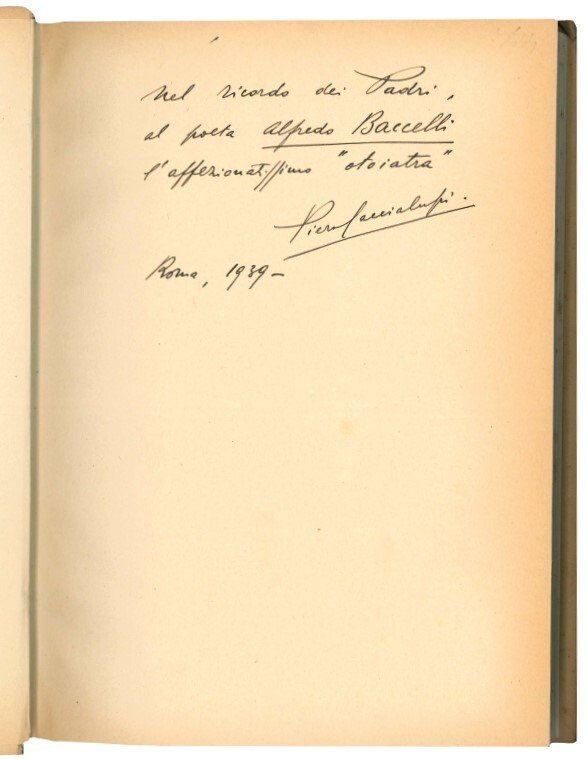 Nel ricordo dei Padri,
al poeta Alfredo Baccelli
l'affezionatissimo "otoiatra"
Piero Caccialupi.
Roma, 1939 –